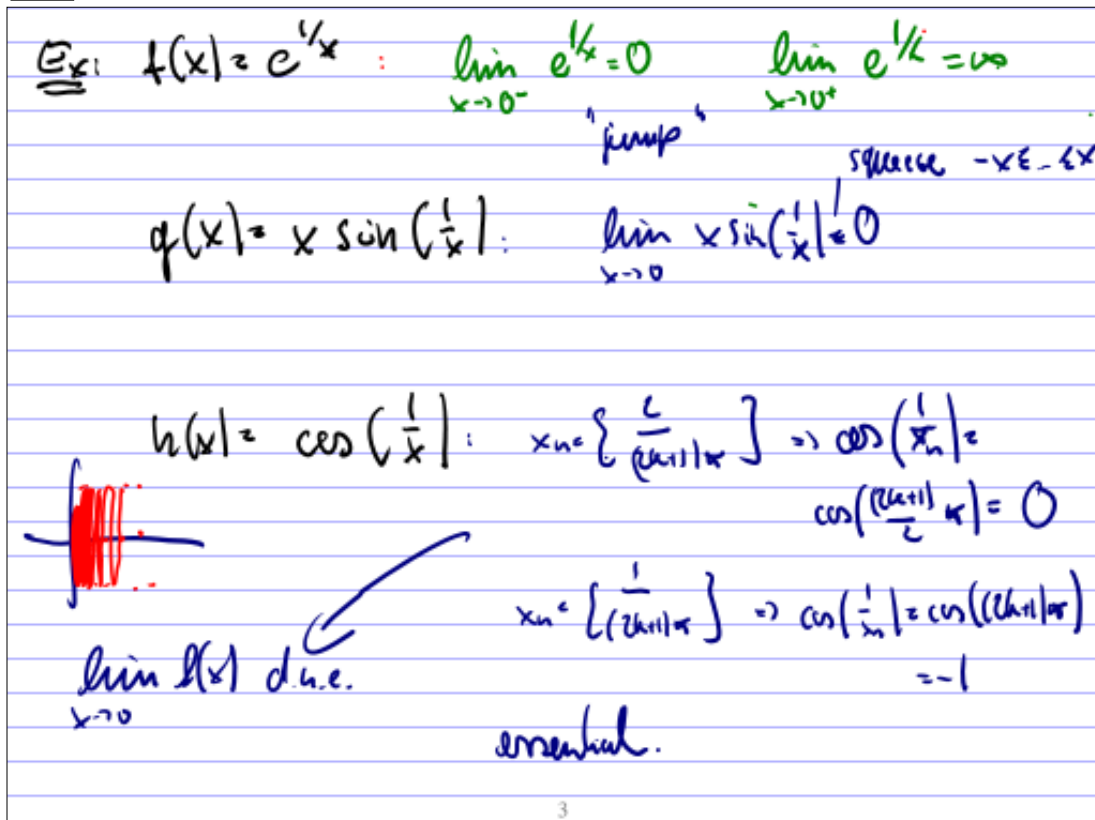 Ex: f(x) = e^{1/x} : lim_{x→0^-} e^{1/x} = 0 lim_{x→0^+} e^{1/x} = ∞
"jump"
squeeze -x ≤ _ ≤ x
g(x) = x sin(1/x) : lim_{x→0} x sin(1/x) = 0
h(x) = cos(1/x) : x_n = {2/((2n+1)π)} => cos(1/x_n) =
cos((2n+1)/2 π) = 0
x_n = {1/((2n+1)π)} => cos(1/x_n) = cos((2n+1)π)
= -1
lim_{x→0} f(x) d.n.e.
essential.
3